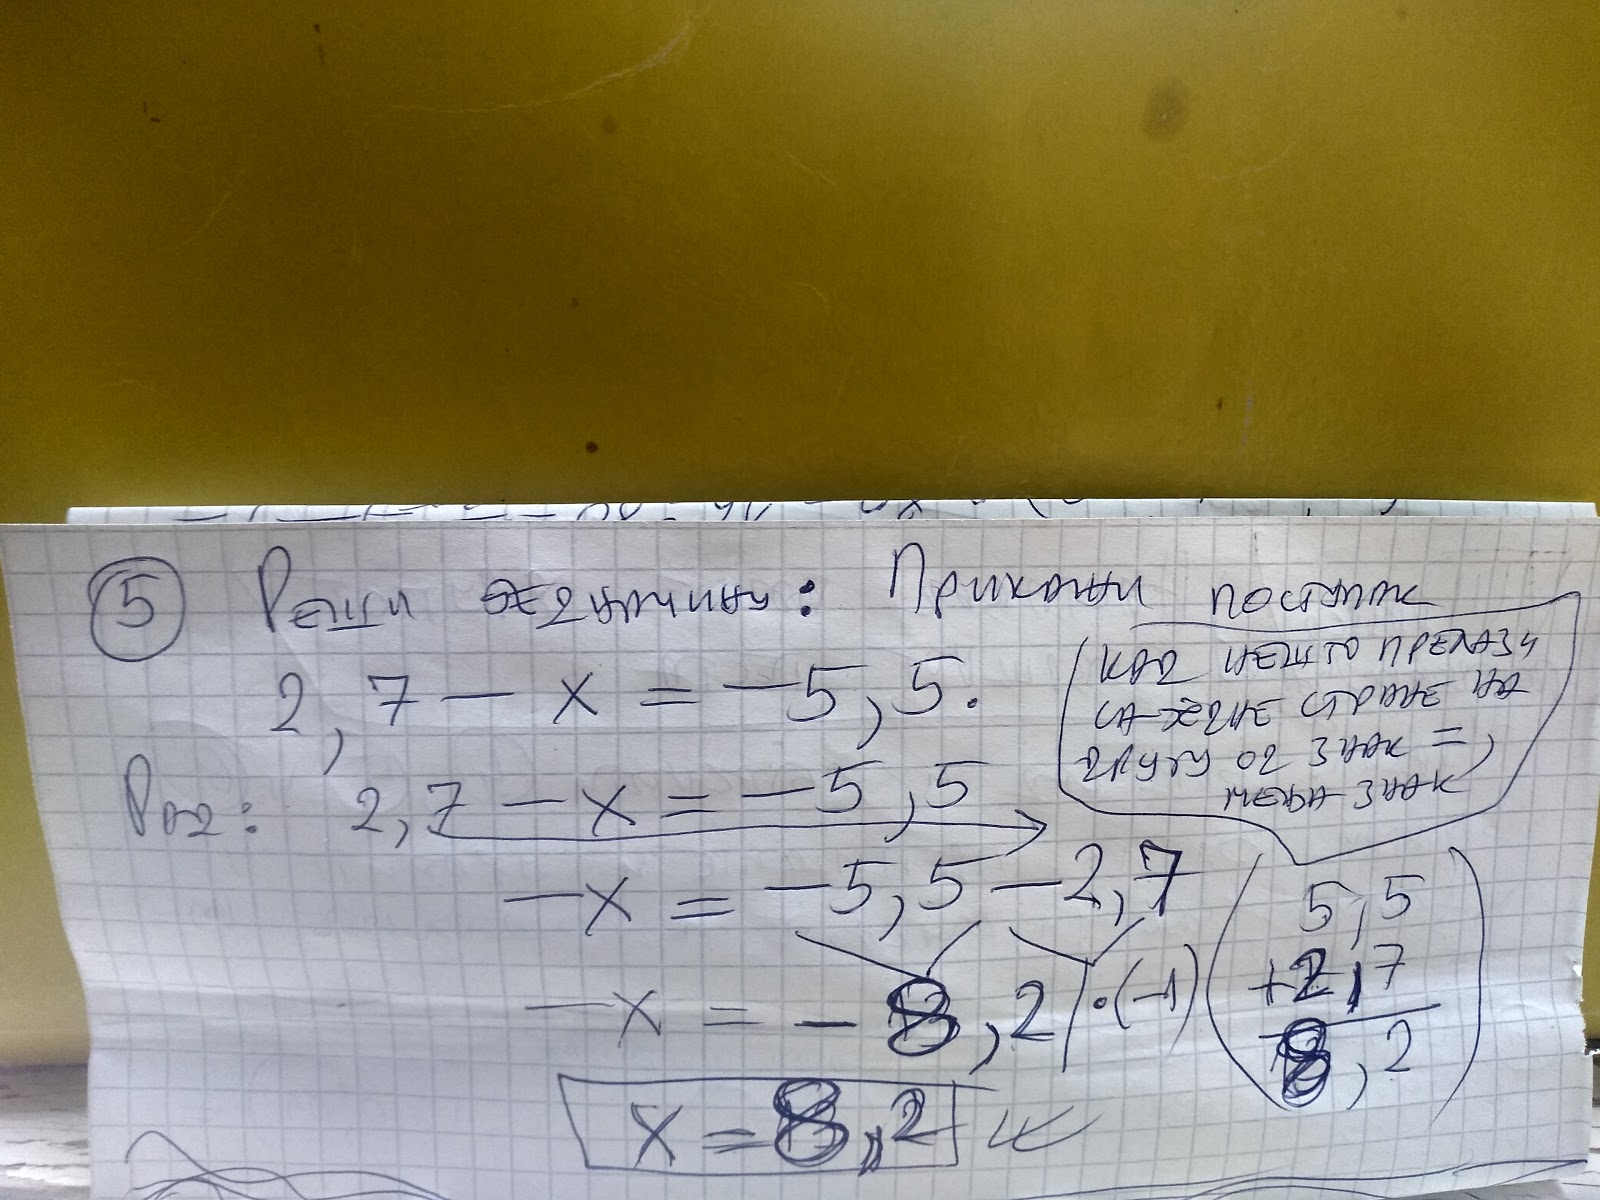 5 Реши једначину: Прикажи поставак
2,7 - x = -5,5.
Рад: 2,7 - x = -5,5
-x = -5,5 - 2,7
-x = -8,2 /·(-1)
x = 8,2
КАД НЕШТО ПРЕЛАЗИ
СА ЈЕДНЕ СТРАНЕ НА
ДРУГУ ОД ЗНАК =,
МЕЊА ЗНАК
5,5
+2,7
8,2